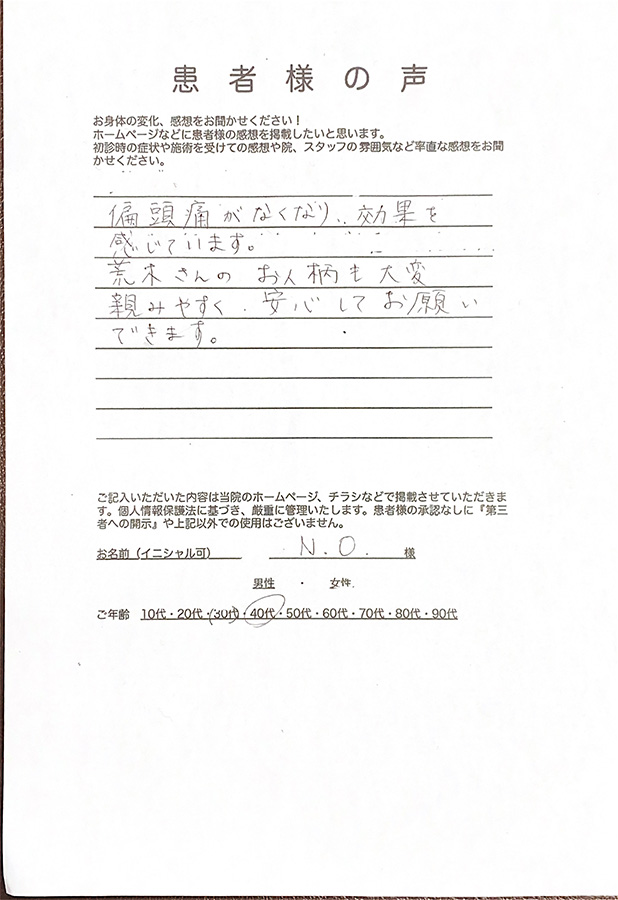 患者様の声
お身体の変化、感想をお聞かせください！
ホームページなどに患者様の感想を掲載したいと思います。
初診時の症状や施術を受けての感想や院、スタッフの雰囲気など率直な感想をお聞
かせください。
偏頭痛がなくなり、効果を
感じています。
荒木さんのお人柄も大変
親みやすく、安心してお願い
できます。
ご記入いただいた内容は当院のホームページ、チラシなどで掲載させていただきま
す。個人情報保護法に基づき、厳重に管理いたします。患者様の承認なしに『第三
者への開示』や上記以外での使用はございません。
お名前（イニシャル可） N.O. 様
男性 ・ 女性
ご年齢 10代・20代・(30代)・40代・50代・60代・70代・80代・90代